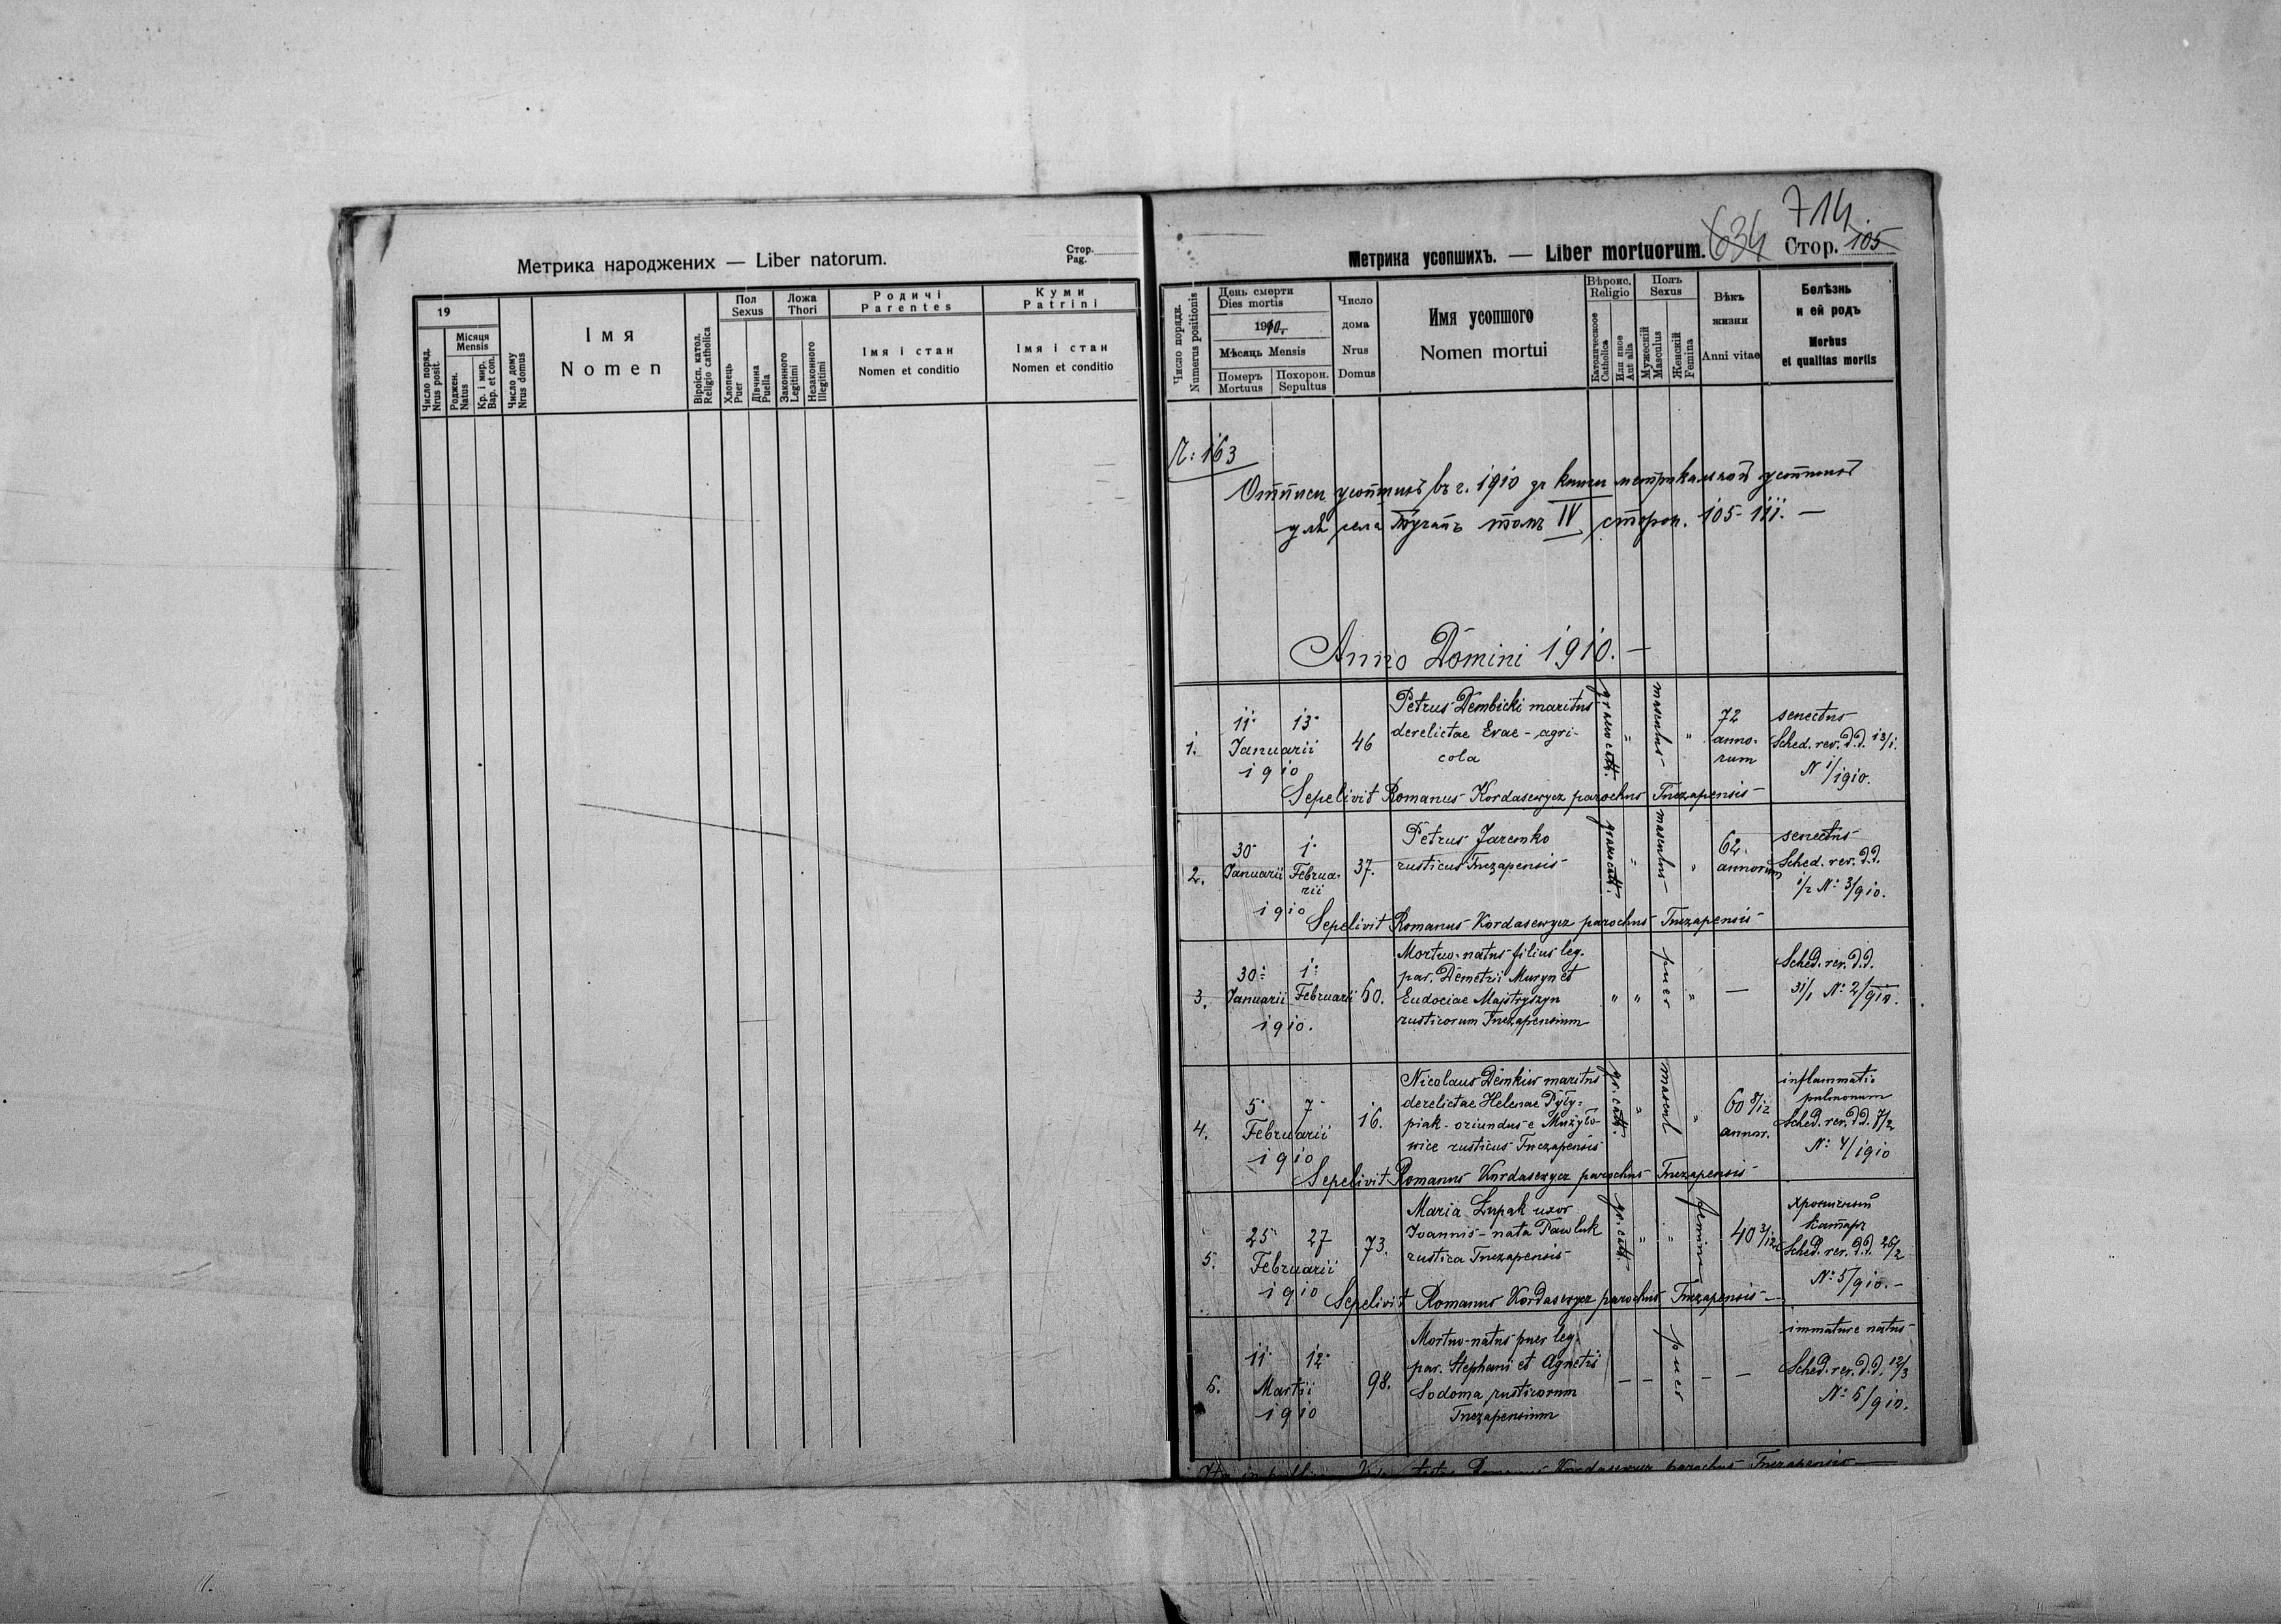 Метрика народжених — Liber natorum.
Стор.
Pag.
19
Число поряд.
Nrus posit
Місяця
Mensis
Роджен.
Natus
Кр. і мир.
Bap. et con.
Число дому
Nrus domus
Імя
Nomen
Віроісп. катол.
Religio catholica
Пол
Sexus
Хлопець
Puer
Дівчина
Puella
Ложа
Thori
Законного
Legitimi
Незаконного
Illegitimi
Родичі
Parentes
Імя і стан
Nomen et conditio
Куми
Patrini
Імя і стан
Nomen et conditio
714
634
Метрика усопшихъ. — Liber mortuorum.
Стор. 105
Число порядк.
Numerus positionis
День смерти
Dies mortis
1910.
Мѣсяць Mensis
Померъ
Mortuus
Похорон.
Sepultus
Число
дома
Nrus
Domus
Имя усопшого
Nomen mortui
Вѣроис.
Religio
Католическое
Catholica
Или иное
Aut alia
Полъ
Sexus
Мужескій
Masculus
Женскій
Femina
Вѣкъ
жизни
Anni vitae
Болѣзнь
и ей родъ
Morbus
et qualitas mortis
Л: 163
усопшихъ въ г. 1910 зъ книги метрикальной усопшихъ
для села Тучапъ томъ IV сторон. 105-111. —
Anno Domini 1910. —
1.
11 13
Januarii
1910
46
Petrus Dembicki maritus
derelictae Evae - agri-
cola
graeco cath.
"
masculus -
"
72
anno-
rum
senectus
Sched. rev. d.d. 13/1.
N 1/1910.
Sepelivit Romanus Kordasewycz parochus Tuczapensis
2.
30 1
Januarii Februa-
rii
1910
37.
Petrus Jaremko
rusticus Tuczapensis
graeco cath.
"
masculus -
"
62
annorum
senectus
Sched. rev. d.d.
1/2 N: 3/910.
Sepelivit Romanus Kordasewycz parochus Tuczapensis
3.
30 1
Januarii Februarii
1910.
60.
Mortuo-natus filius leg.
par. Demetrii Muryn et
Eudociae Majstryszyn
rusticorum Tuczapensium
" "
puer
"
—
Sched. rev. d.d.
31/1 N: 2/910.
4.
5 7
Februarii
1910
16.
Nicolaus Demkiw maritus
derelictae Helenae Pyły-
piak - oriundus e Mużyło-
wice rusticus Tuczapensis
gr. cath.
"
mascul
"
60 8/12
annor.
inflammatio
pulmonum
Sched. rev. d.d. 7/2
N: 4/1910
Sepelivit Romanus Kordasewycz parochus Tuczapensis
5.
25 27
Februarii
1910
73.
Maria Łupak uxor
Joannis - nata Pawluk
rustica Tuczapensis
gr. cath.
" "
femina
40 3/12
хроничный
катаръ
Sched. rev. d.d. 26/2
N: 5/910. -
Sepelivit Romanus Kordasewycz parochus Tuczapensis —
6.
11 12
Martii
1910
98.
Mortuo-natus puer leg.
par. Stephani et Agnetis
Sodoma rusticorum
Tuczapensium
— —
puer
— —
immature natus
Sched. rev. d.d. 12/3
N: 6/910.
Romanus Kordasewycz parochus Tuczapensis —